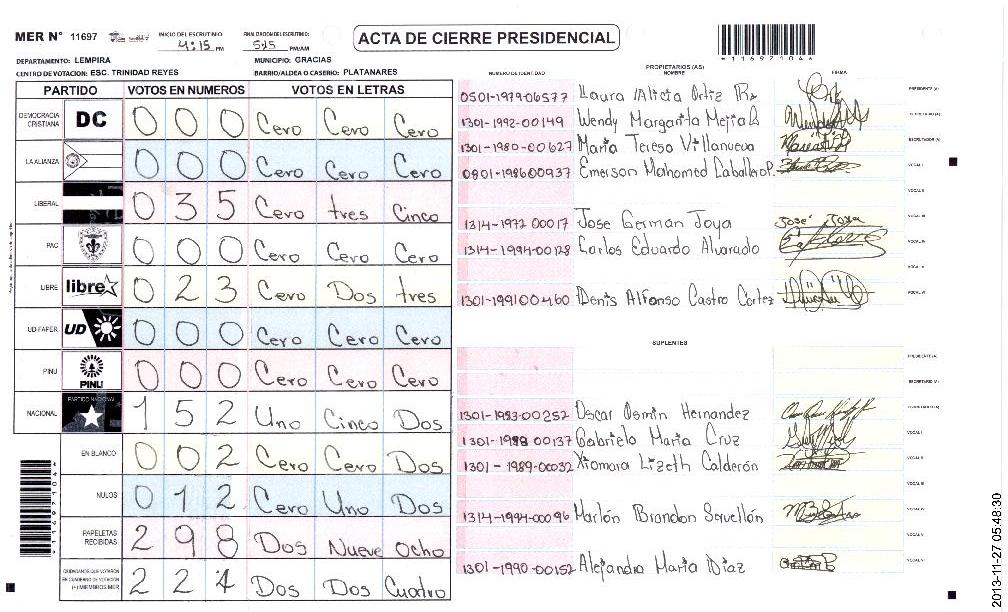 MER Nº 11697 INICIO DEL ESCRUTINIO 4:15 PM FINALIZACION DEL ESCRUTINIO: 5:15 PM/AM
ACTA DE CIERRE PRESIDENCIAL
*11697104*
DEPARTAMENTO: LEMPIRA MUNICIPIO: GRACIAS
CENTRO DE VOTACION: ESC. TRINIDAD REYES BARRIO/ALDEA O CASERIO: PLATANARES
PARTIDO VOTOS EN NUMEROS VOTOS EN LETRAS
DEMOCRACIA CRISTIANA DC 0 0 0 Cero Cero Cero
LA ALIANZA 0 0 0 Cero Cero Cero
LIBERAL 0 3 5 Cero tres Cinco
PAC 0 0 0 Cero Cero Cero
LIBRE libre 0 2 3 Cero Dos tres
UD-FAPER UD 0 0 0 Cero Cero Cero
PINU PINU 0 0 0 Cero Cero Cero
NACIONAL PARTIDO NACIONAL 1 5 2 Uno Cinco Dos
EN BLANCO 0 0 2 Cero Cero Dos
NULOS 0 1 2 Cero Uno Dos
PAPELETAS RECIBIDAS 2 9 8 Dos Nueve Ocho
CIUDADANOS QUE VOTARON EN CUADERNO DE VOTACIÓN (+) MIEMBROS MER 2 2 4 Dos Dos Cuatro
PROPIETARIOS (AS)
NUMERO DE IDENTIDAD NOMBRE FIRMA
0501-1979-06577 Laura Alicia Ortiz R. PRESIDENTE (A)
1301-1992-00149 Wendy Margarita Mejia SECRETARIO (A)
1301-1980-00627 Maria Teresa Villanueva ESCRUTADOR (A)
0801-198600937 Emerson Mahomed Caballero P. VOCAL I
VOCAL II
1314-1972 00017 Jose German Joya José Joya VOCAL III
1314-1994-00128 Carlos Eduardo Alvarado VOCAL IV
VOCAL V
1301-199100460 Denis Alfonso Castro Cortez VOCAL VI
SUPLENTES
PRESIDENTE (A)
SECRETARIO (A)
1301-1983-00252 Oscar Osmin Hernandez ESCRUTADOR (A)
1301-1988 00137 Gabriela Maria Cruz VOCAL I
1301-1989-00032 Xiomara Lizeth Calderón VOCAL II
VOCAL III
1314-1994-00096 Marlón Brandon Servellón VOCAL IV
VOCAL V
1301-1990-00152 Alejandra Maria Diaz VOCAL VI
2013-11-27 05:48:30